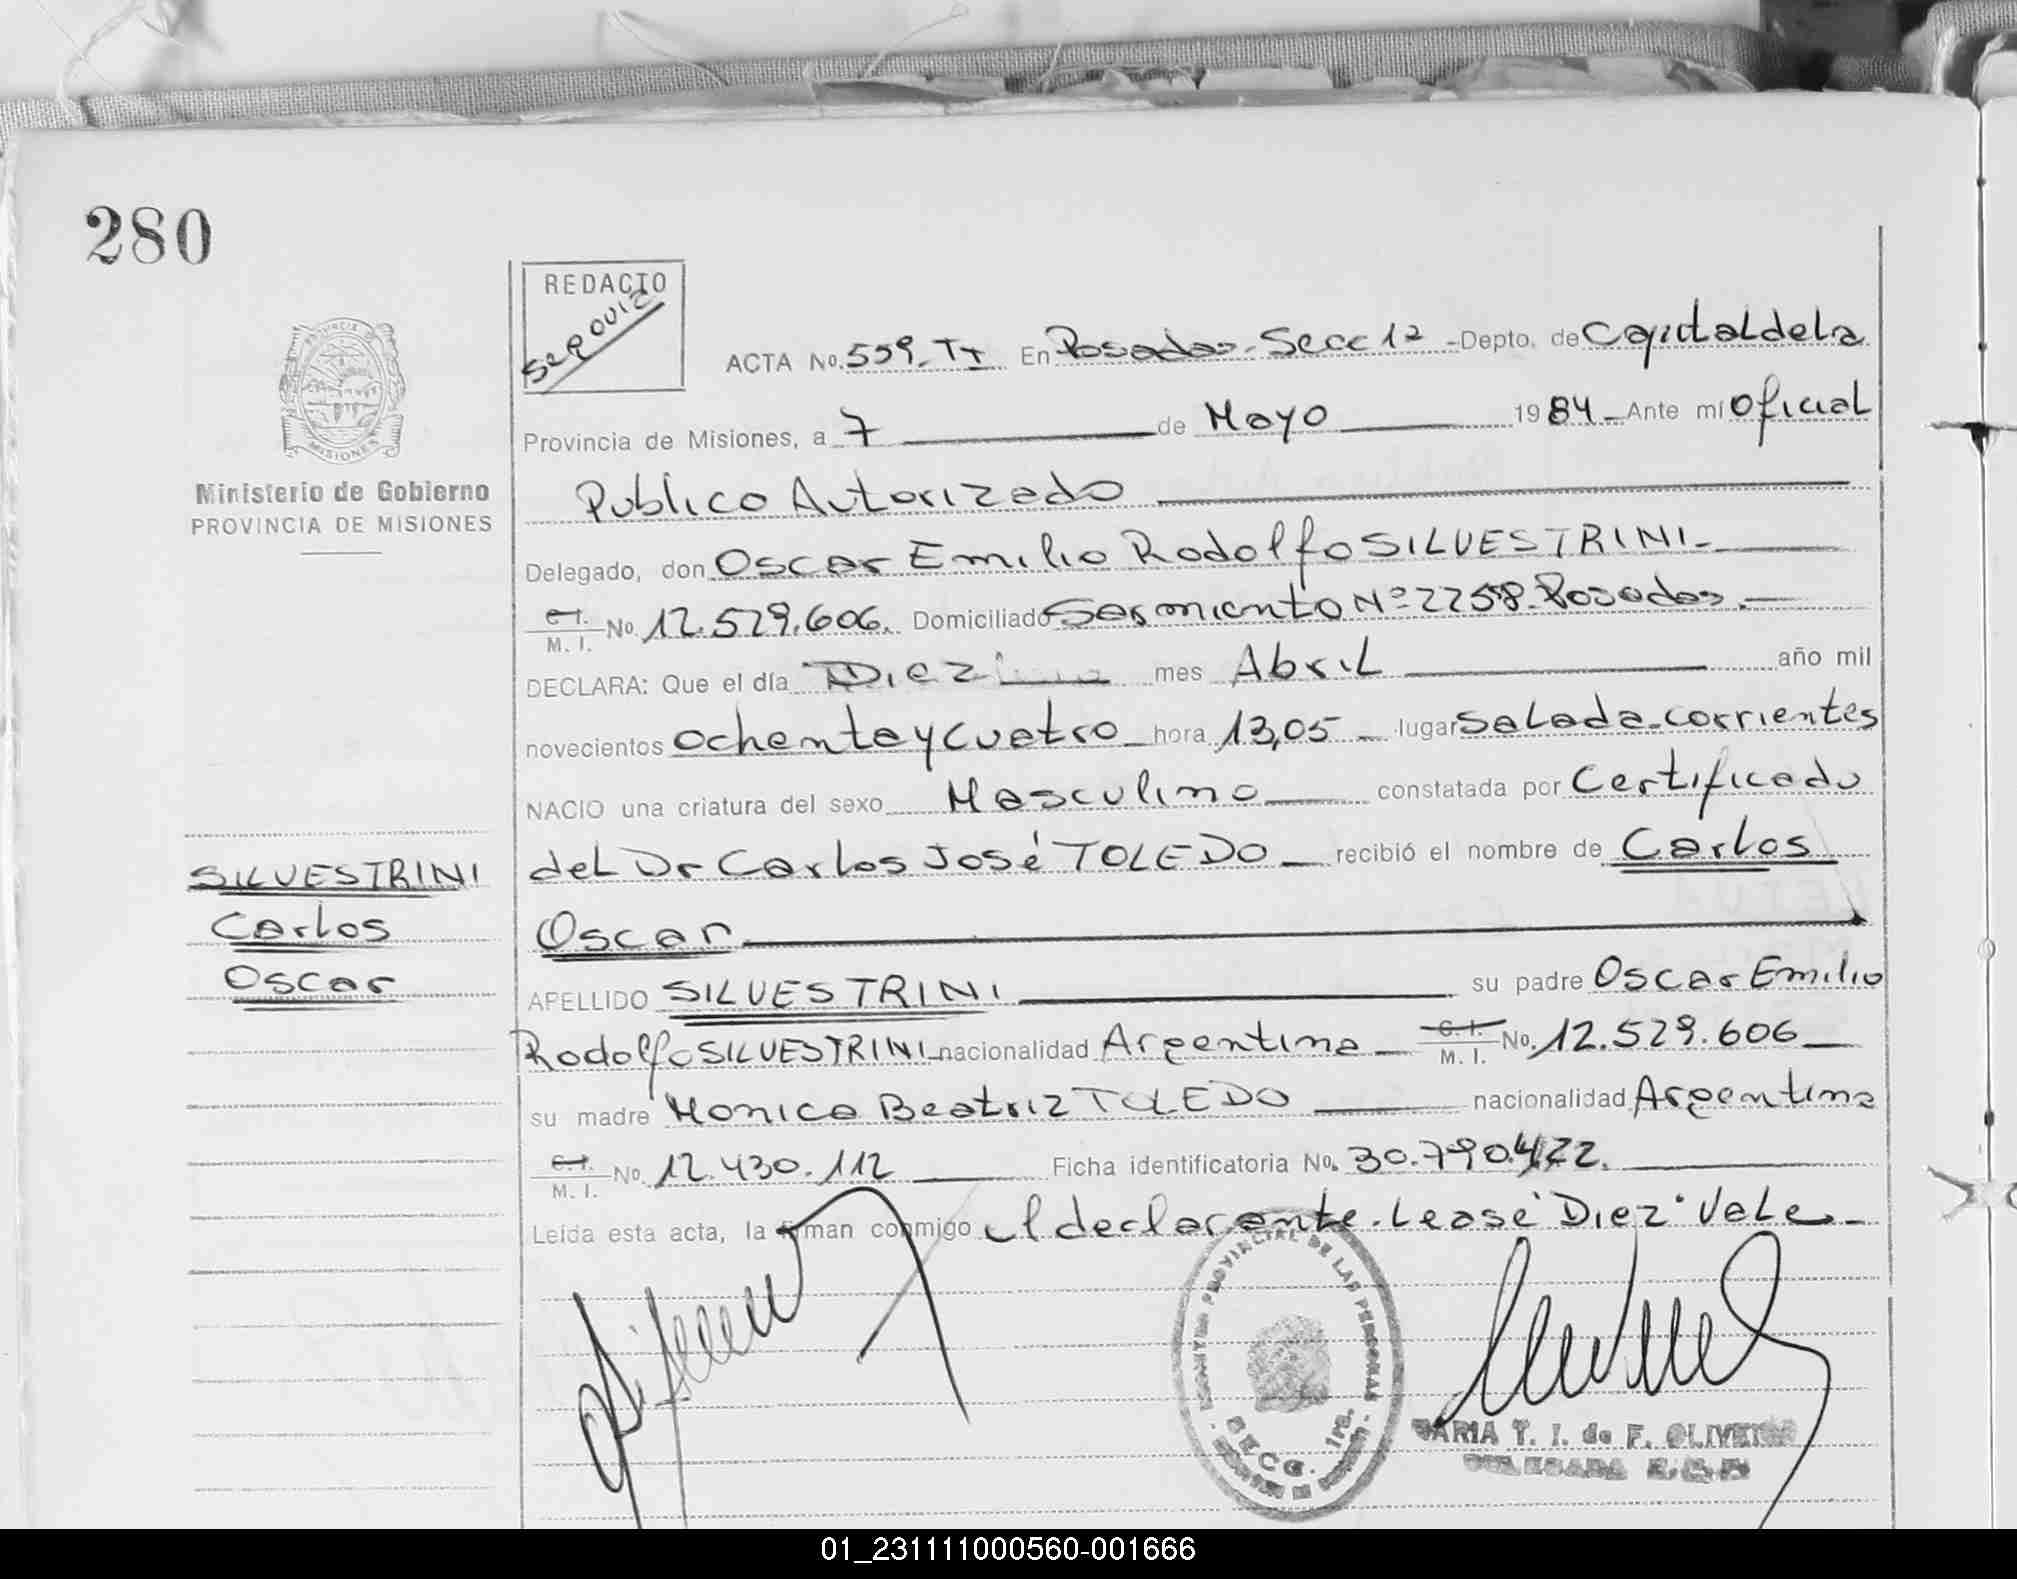 280
REDACTO
PROVINCIA DE
MISIONES
Ministerio de Gobierno
PROVINCIA DE MISIONES
ACTA No. 559-TI En Posadas-Secc 1ª -Depto. de Capital de la
Provincia de Misiones, a 7 de Mayo 1984 Ante mí Oficial
Publico Autorizado
Delegado, don Oscar Emilio Rodolfo SILVESTRINI-
C.I. M. I. No. 12.529.606. Domiciliado Sarmiento Nº 2258-Posadas.-
DECLARA: Que el día Diez mes Abril año mil
novecientos ochenta y cuatro hora 13,05 lugar Salada-Corrientes
NACIO una criatura del sexo Masculino constatada por Certificado
del Dr Carlos José TOLEDO recibió el nombre de Carlos
Oscar
APELLIDO SILVESTRINI su padre Oscar Emilio
Rodolfo SILVESTRINI nacionalidad Argentina C.I. M. I. No. 12.529.606
su madre Monica Beatriz TOLEDO nacionalidad Argentina
C.I. M. I. No. 12.430.112 Ficha identificatoria No. 30.790.422.
Leída esta acta, la firman conmigo el declarante. Lease "Diez" Vale.-
SILVESTRINI
Carlos
Oscar
PROVINCIAL DE LAS PERSONAS
SECC. 1ra.
MARIA T. I. de F. OLIVEIRA
DELEGADA
01_231111000560-001666